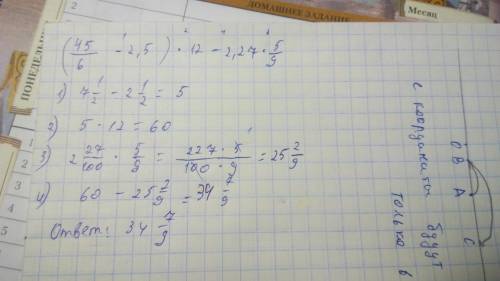 ДОМАШНЕЕ ЗАДАНИЕ
Месяц
ПОНЕДЕЛЬНИК
(45/6 - 2,5) · 12 - 2,27 · 5/9
1) 7 1/2 - 2 1/2 = 5
2) 5 · 12 = 60
3) 2 27/100 · 5/9 = 227 · 5/100 · 9 = 25 2/9
4) 60 - 25 2/9 = 34 7/9
Ответ: 34 7/9
с координаты будут
только в
О В А С